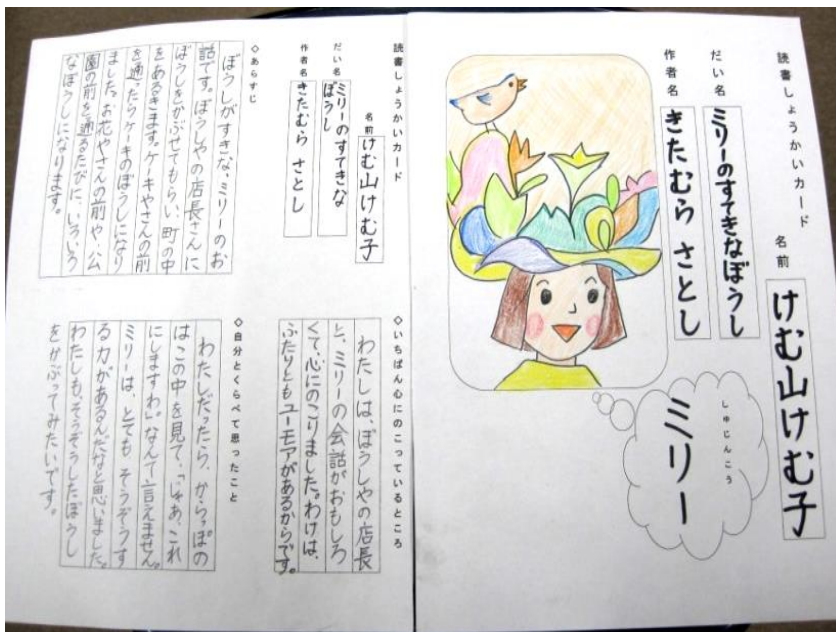 読書しょうかいカード
名前
けむ山けむ子
だい名
ミリーのすてきなぼうし
作者名
きたむら さとし
しゅじんこう
ミリー
読書しょうかいカード
名前
けむ山けむ子
だい名
ミリーのすてきな
ぼうし
作者名
きたむら さとし
◇あらすじ
ぼうしがすきな、ミリーのお
話です。ぼうしやの店長さんに
ぼうしをかぶせてもらい、町の中
をあるきます。ケーキやさんの前
を通ったらケーキのぼうしになり
ました。お花やさんの前や、公
園の前を通るたびに、いろいろ
なぼうしになります。
◇いちばん心にのこっているところ
わたしは、ぼうしやの店長
と、ミリーの会話がおもしろ
くて、心にのこりました。わけは、
ふたりともユーモアがあるからです。
◇自分とくらべて思ったこと
わたしだったら、からっぽの
はこの中を見て、「じゃあ、これ
にしますわ」なんて言えません。
ミリーは、とてもそうぞうす
る力があるんだなと思いました。
わたしも、そうぞうしたぼうし
をかぶってみたいです。